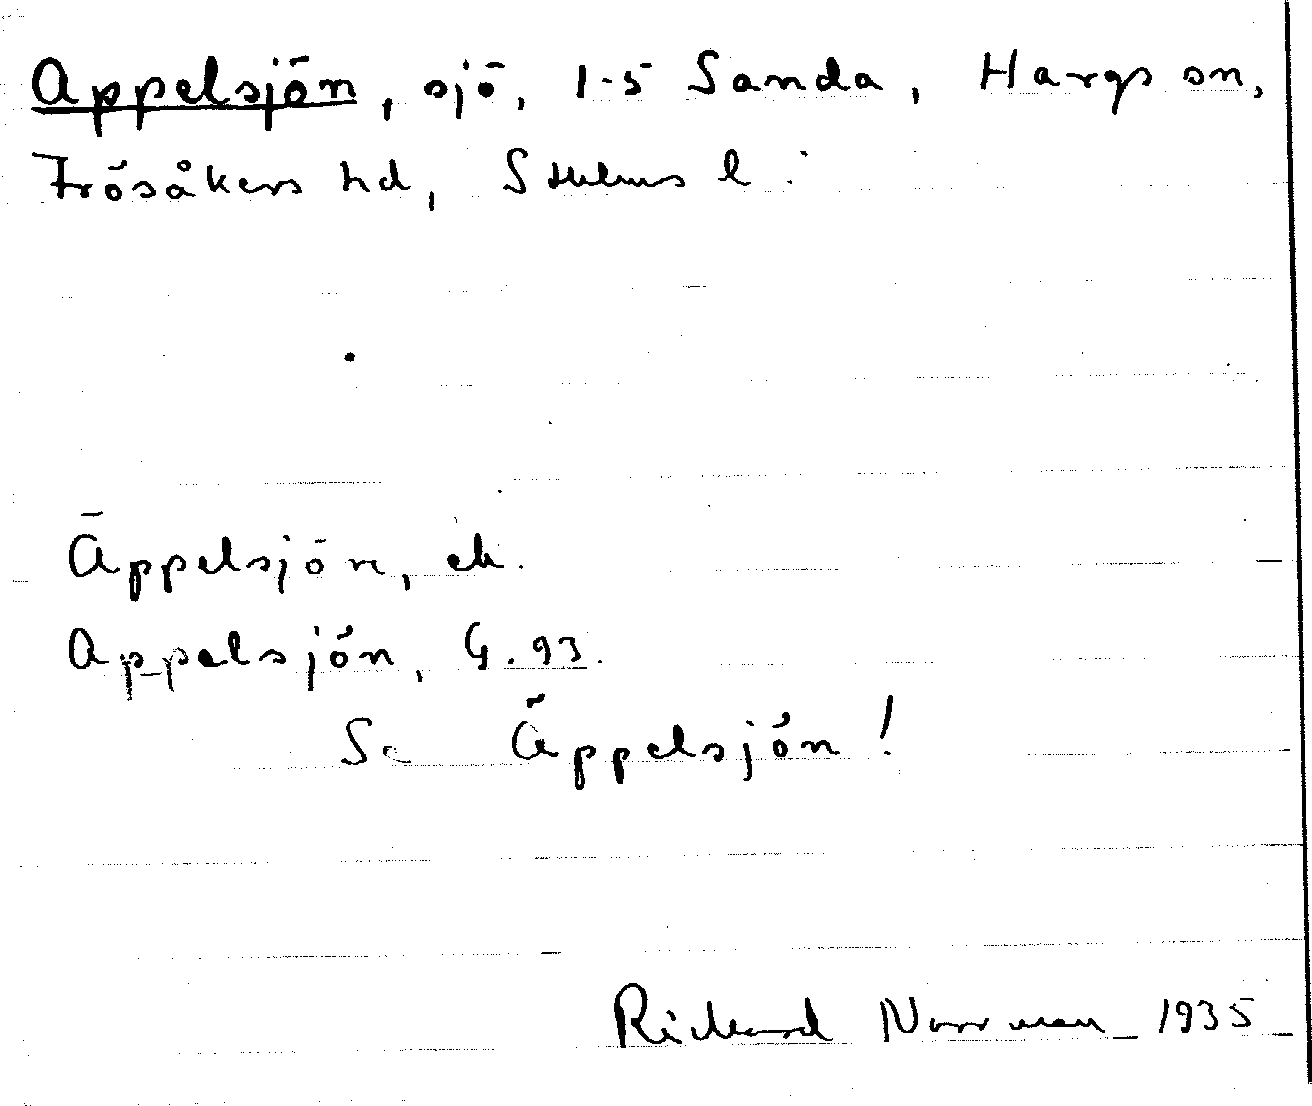 Appelsjön, sjö, 1-5 Sanda, Hargs sn,
Frösåkers hd, Sthlms l.
Äppelsjön, ek.
Appelsjön, G. 93.
Se Äppelsjön!
Richard Norrman 1935